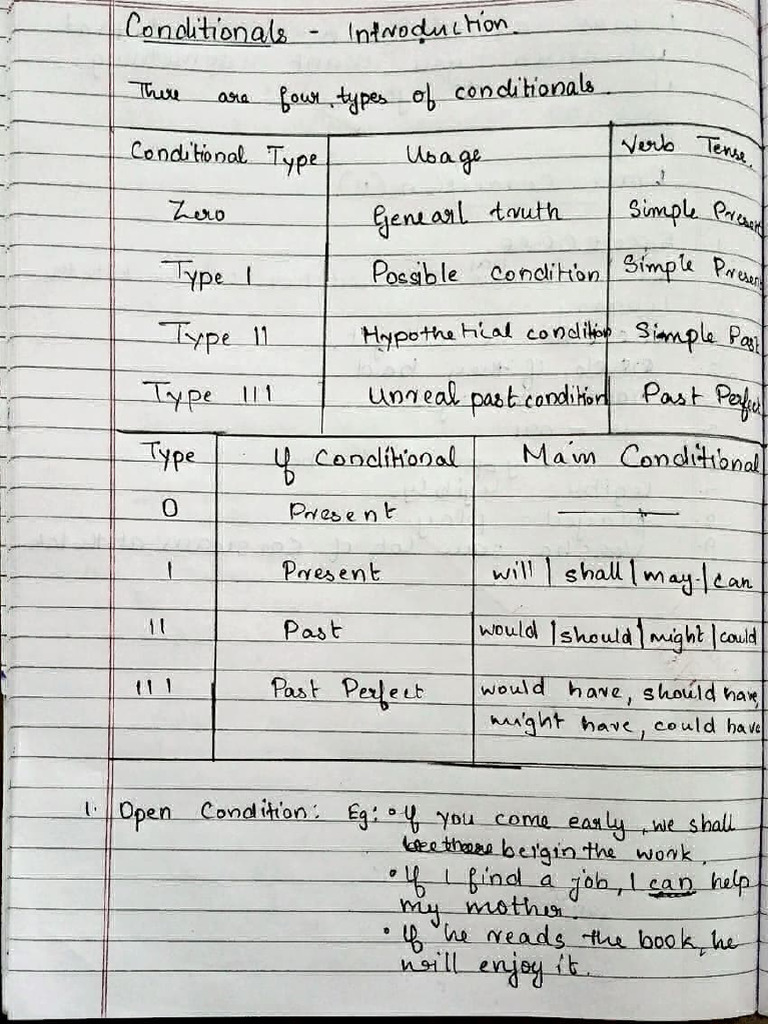 Conditionals - Introduction.
There are four types of conditionals.
Conditional Type Usage Verb Tense.
Zero Genearl truth Simple Present
Type I Possible condition Simple Present
Type II Hypothetical condition Simple Past
Type III Unreal past condition Past Perfect
Type If Conditional Main Conditional
0 Present —
I Present will / shall / may / can
II Past would / should / might / could
III Past Perfect would have, should have,
might have, could have
1. Open Condition: Eg: • If you come early, we shall
beigin the work.
• If I find a job, I can help
my mother.
• If he reads the book, he
will enjoy it.